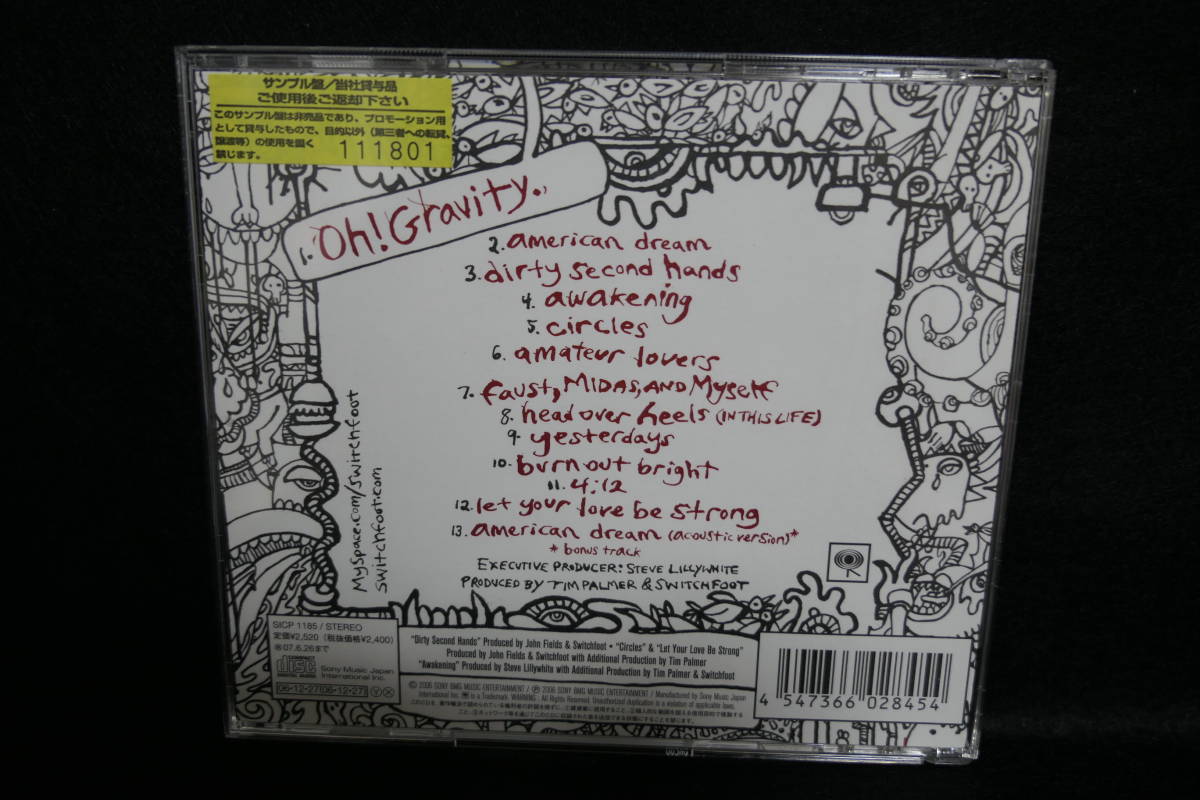 サンプル盤/当社貸与品
ご使用後ご返却下さい
このサンプル盤は非売品であり、プロモーション用
として貸与したもので、目的以外(第三者への転貸、
譲渡等)の使用を固く
禁じます。
111801
1. Oh! Gravity.
2. american dream
3. dirty second hands
4. awakening
5. circles
6. amateur lovers
7. faust, MIDAS, AND Myself
8. head over heels (IN THIS LIFE)
9. yesterdays
10. burn out bright
11. 4:12
12. let your love be strong
13. american dream (acoustic version)*
* bonus track
EXECUTIVE PRODUCER: STEVE LILLYWHITE
PRODUCED BY TIM PALMER & SWITCHFOOT
MYSpace.com/switchfoot
switchfoot.com
SICP 1185 / STEREO
定価¥2,520 (税抜価格¥2,400)
07.6.26まで
COMPACT
disc
DIGITAL AUDIO
Sony Music Japan
International Inc.
06-12-27 (06-12-27)
"Dirty Second Hands" Produced by John Fields & Switchfoot • "Circles" & "Let Your Love Be Strong"
Produced by John Fields & Switchfoot with Additional Production by Tim Palmer
"Awakening" Produced by Steve Lillywhite with Additional Production by Tim Palmer & Switchfoot
© 2006 SONY BMG MUSIC ENTERTAINMENT / ℗ 2006 SONY BMG MUSIC ENTERTAINMENT / Manufactured by Sony Music Japan
International Inc. is a Trademark. WARNING : All Rights Reserved. Unauthorized duplication is a violation of applicable laws.
4 547366 028454